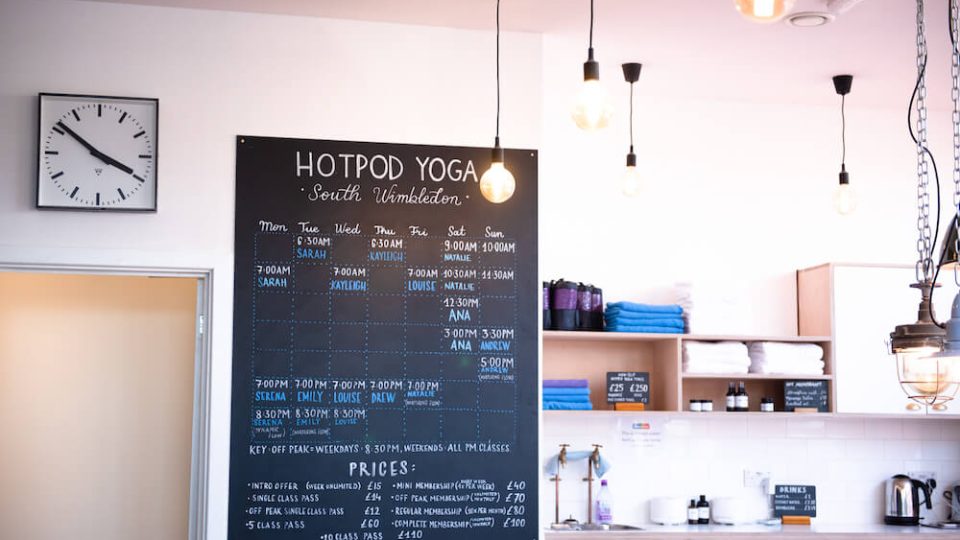 HOTPOD YOGA
South Wimbledon
Mon Tue Wed Thu Fri Sat Sun
6:30AM 6:30AM 9:00AM 10:00AM
SARAH KAYLEIGH NATALIE
7:00AM 7:00AM 7:00AM 10:30AM 11:30AM
SARAH KAYLEIGH LOUISE NATALIE
12:30PM
ANA
3:00PM 3:30PM
ANA ANDREW
5:00PM
ANDREW
7:00PM 7:00PM 7:00PM 7:00PM 7:00PM
SERENA EMILY LOUISE DREW NATALIE
8:30PM 8:30PM 8:30PM
SERENA EMILY LOUISE
KEY: OFF PEAK = WEEKDAYS: 8:30PM, WEEKENDS: ALL PM CLASSES
PRICES:
• INTRO OFFER (WEEK UNLIMITED) £15 • MINI MEMBERSHIP £40
• SINGLE CLASS PASS £14 • OFF PEAK MEMBERSHIP £70
OFF PEAK SINGLE CLASS PASS £12 • REGULAR MEMBERSHIP £80
• 5 CLASS PASS £60 • COMPLETE MEMBERSHIP £100
• 10 CLASS PASS £110
£25 £250
DRINKS